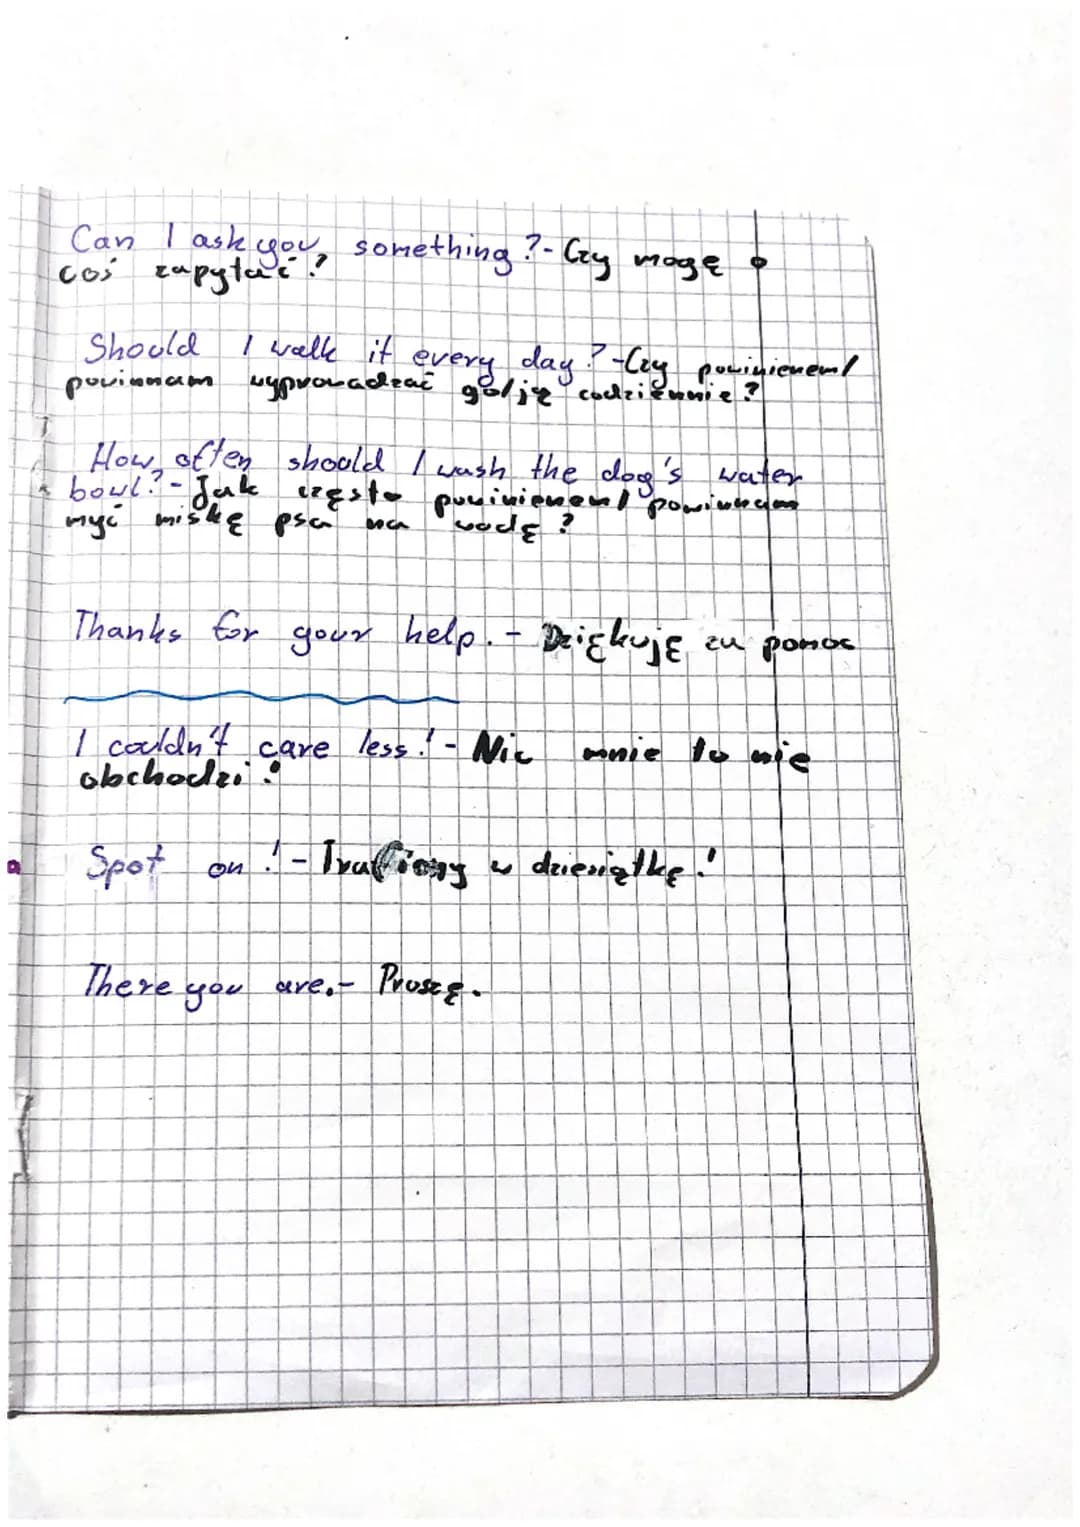 Can I ask you something? - Czy mogę o
coś zapytać?
Should I walk it every day? - Czy powinienem/
powinnam wyprowadzać go/ją codziennie?
How often should I wash the dog's water
bowl? - Jak często powinienem/powinnam
myć miskę psa na wodę?
Thanks for your help. - Dziękuję za pomoc
I couldn't care less! - Nic mnie to nie
obchodzi!
Spot on! - Trafiony w dziesiątkę!
There you are. - Proszę.